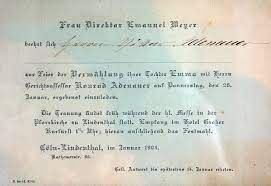 Frau Direktor Emanuel Weyer
beehrt sich Herrn Adenauer
zur Feier der Vermählung ihrer Tochter Emma mit Herrn
Gerichtsassessor Konrad Adenauer auf Donnerstag, den 28.
Januar, ergebenst einzuladen.
Die Trauung findet früh während der hl. Messe in der
Pfarrkirche zu Lindenthal statt. Empfang im Hotel Kaiser
Uhr; hieran anschliessend das Festmahl.
Cöln-Lindenthal, im Januar 1904.
Gefl. Antwort bis spätestens 18. Januar erbeten.